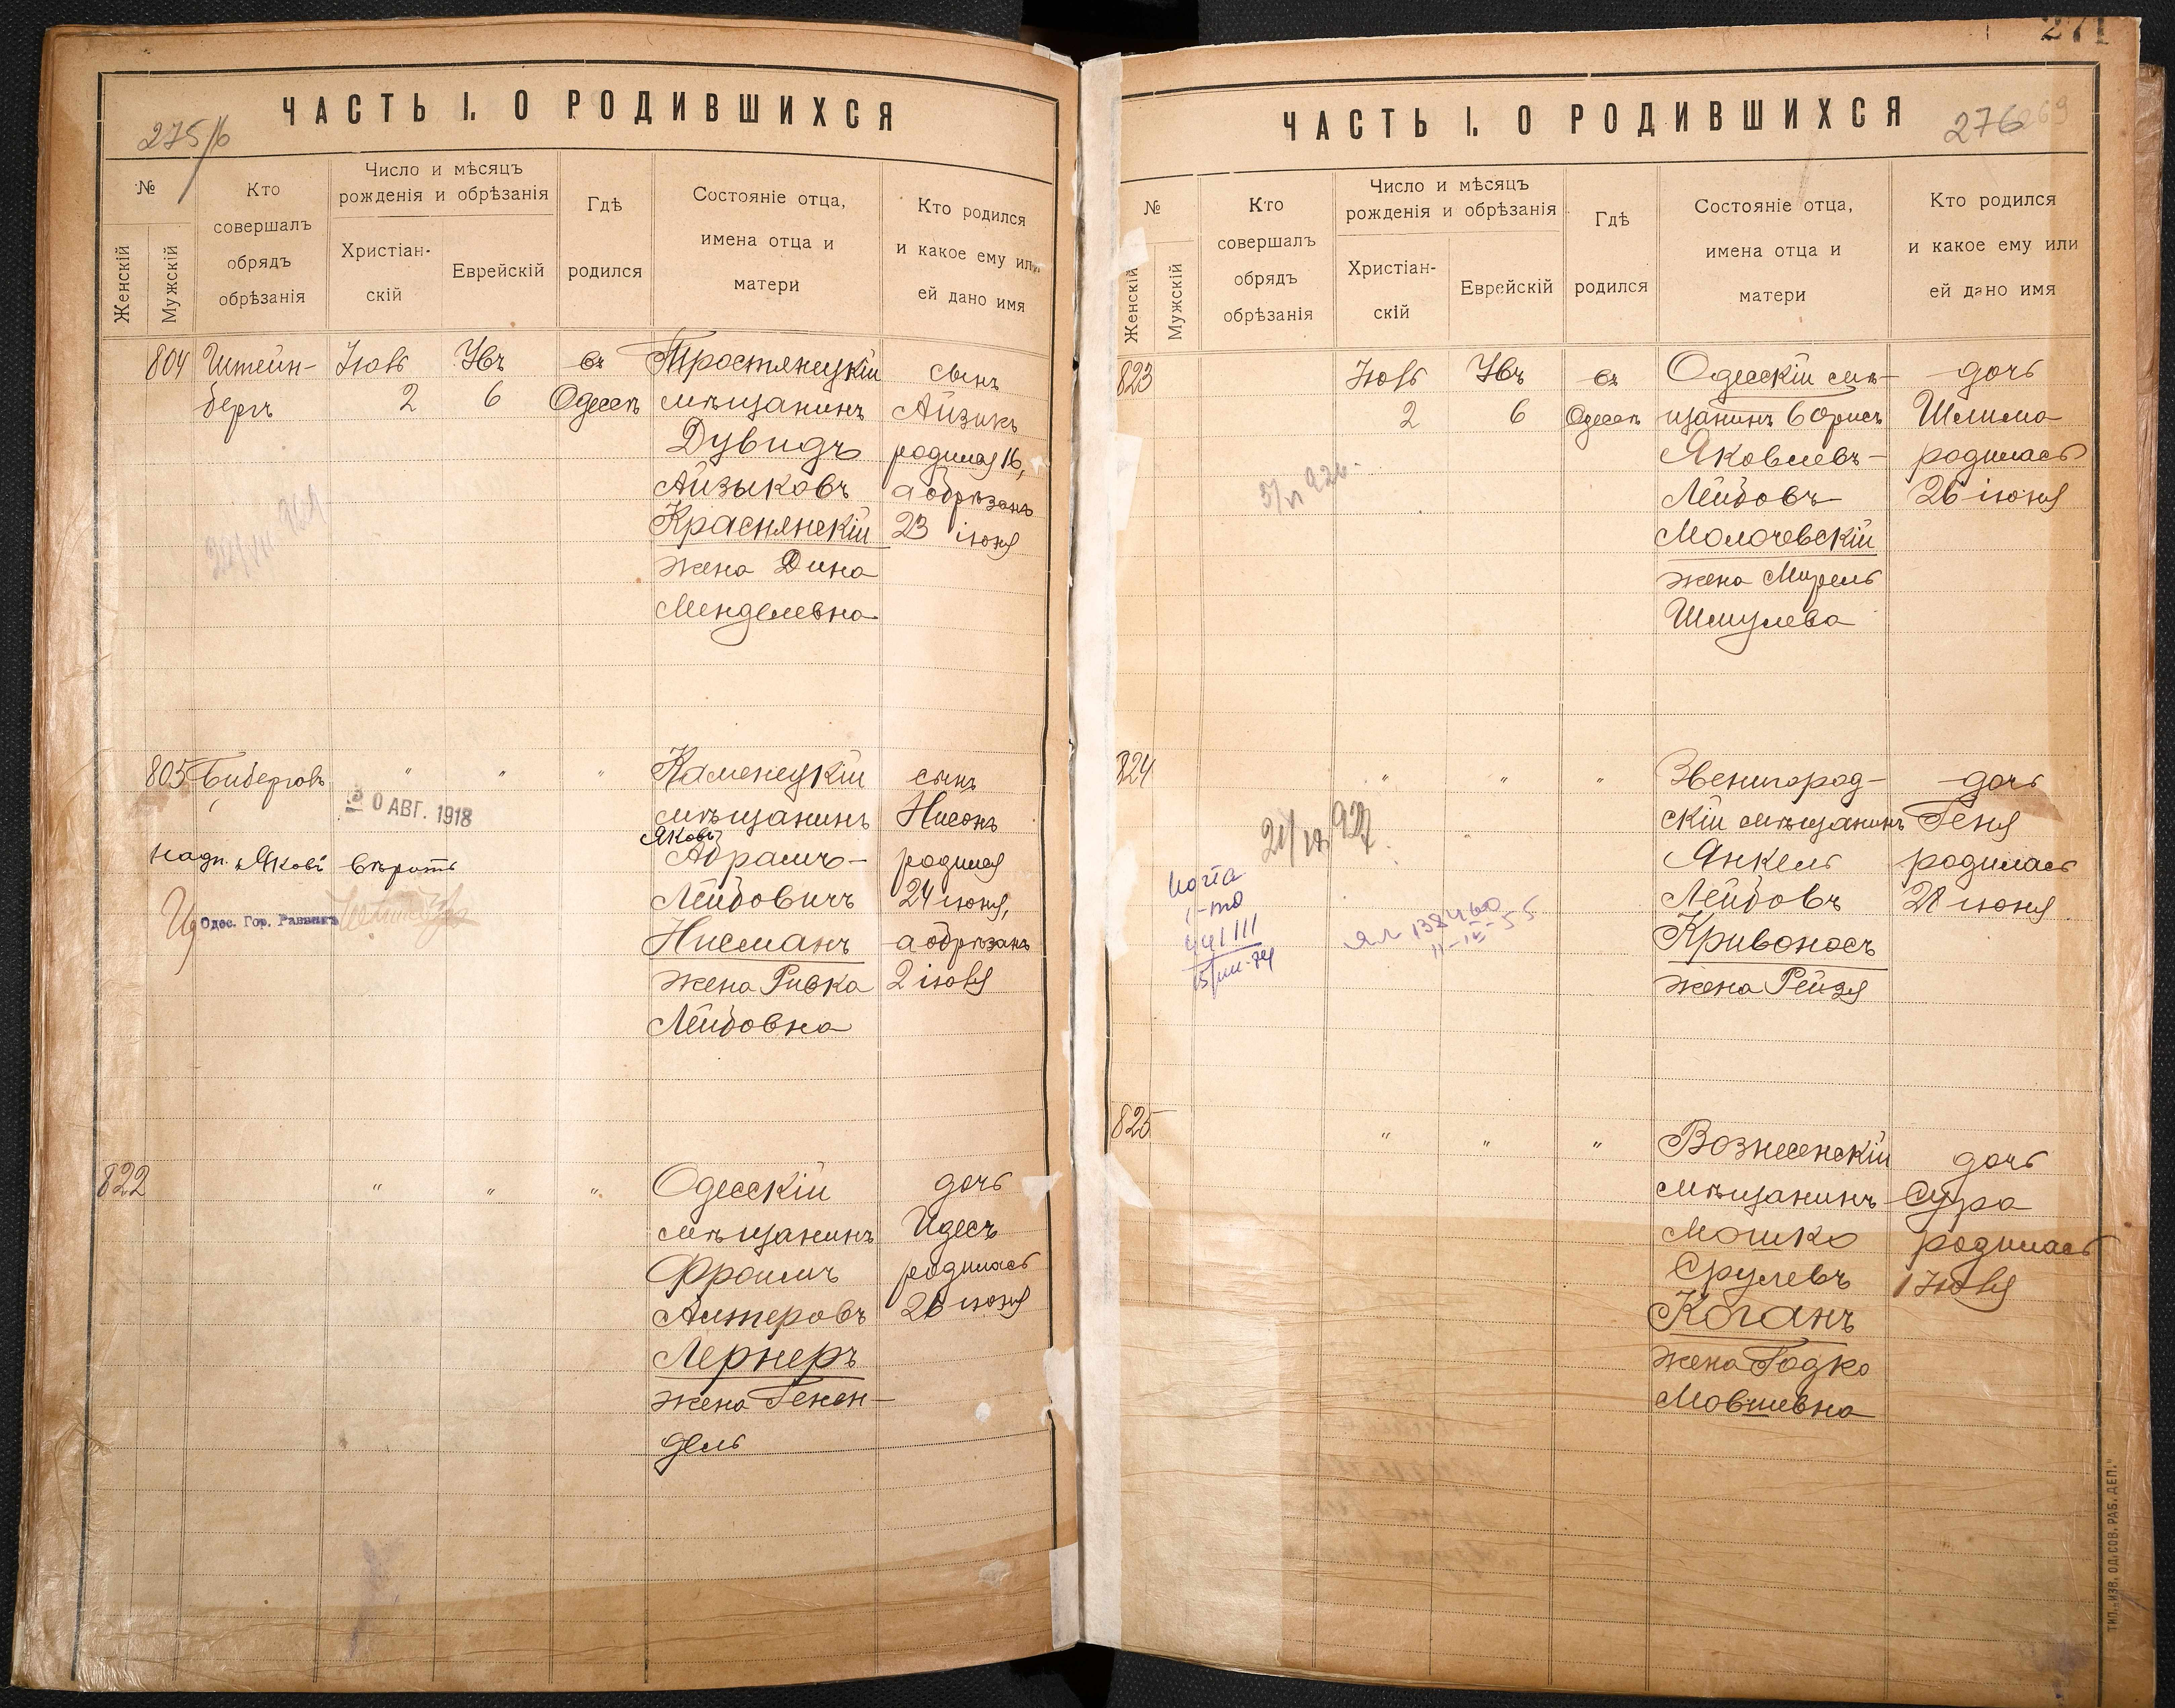 ЧАСТЬ I. О РОДИВШИХСЯ
275/б
№
Женскій
Мужскій
Кто
совершалъ
обрядъ
обрѣзанія
Число и мѣсяцъ
рожденія и обрѣзанія
Христіан-
скій
Еврейскій
Гдѣ
родился
Состояніе отца,
имена отца и
матери
Кто родился
и какое ему или
ей дано имя
804
Штейн-
бергъ
Іюль
2
6
въ
Одессѣ
Тростянецкій
мѣщанинъ
Дувидъ
Айзыковъ
Краснянскій
жена Дина
Менделевна
сынъ
Айзикъ
родился 16,
а обрѣзанъ
23 іюня
805
"
"
"
30 АВГ. 1918
надп. „Яковъ" вѣрить
Одес. Гор. Раввинъ
Каменецкій
мѣщанинъ
Яковъ
Абрамъ-
Лейбовичъ
Нисманъ
жена Ривка
Лейбовна
сынъ
Нисонъ
родился
24 іюня,
а обрѣзанъ
2 іюля
822
"
"
"
Одесскій
мѣщанинъ
Фроимъ
Алтеровъ
Лернеръ
жена Генен-
дель
дочь
Идесъ
родилась
26 іюня
271
ЧАСТЬ I. О РОДИВШИХСЯ
276
269
№
Женскій
Мужскій
Кто
совершалъ
обрядъ
обрѣзанія
Число и мѣсяцъ
рожденія и обрѣзанія
Христіан-
скій
Еврейскій
Гдѣ
родился
Состояніе отца,
имена отца и
матери
Кто родился
и какое ему или
ей дано имя
823
Іюль
2
6
въ
Одессѣ
Одесскій мѣ-
щанинъ Борисъ
Яковлевъ-
Лейбовъ
Молочевскій
жена Мирель
Шмулева
дочь
Шлима
родилась
26 іюня
824
"
"
"
Звенигород-
скій мѣщанинъ
Янкель
Лейбовъ
Кривоносъ
жена Рейзя
дочь
Геня
родилась
28 іюня
825
"
"
"
Вознесенскій
мѣщанинъ
Мошко
Срулевъ
Коганъ
жена Годко
Мовшевна
дочь
Сура
родилась
1 Іюля
ТИП. „ИЗВ. ОД. СОВ. РАБ. ДЕП."